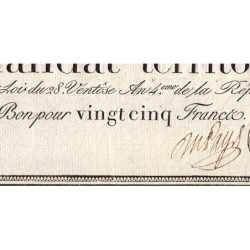 andat territo
Loi du 28 Ventôse An 4.eme de la Rép
Bon pour vingt cinq Francs.